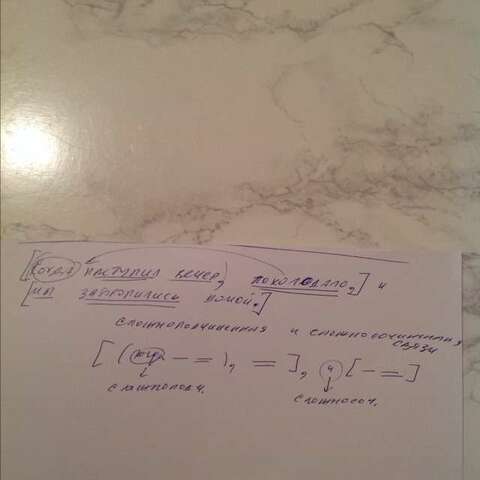 [(когда наступил вечер), похолодало,] и
[мы заторопились домой.]
сложноподчиненная и сложносочиненная
связи
[(когда – =), =], и [– =]
сложнопод. сложносоч.